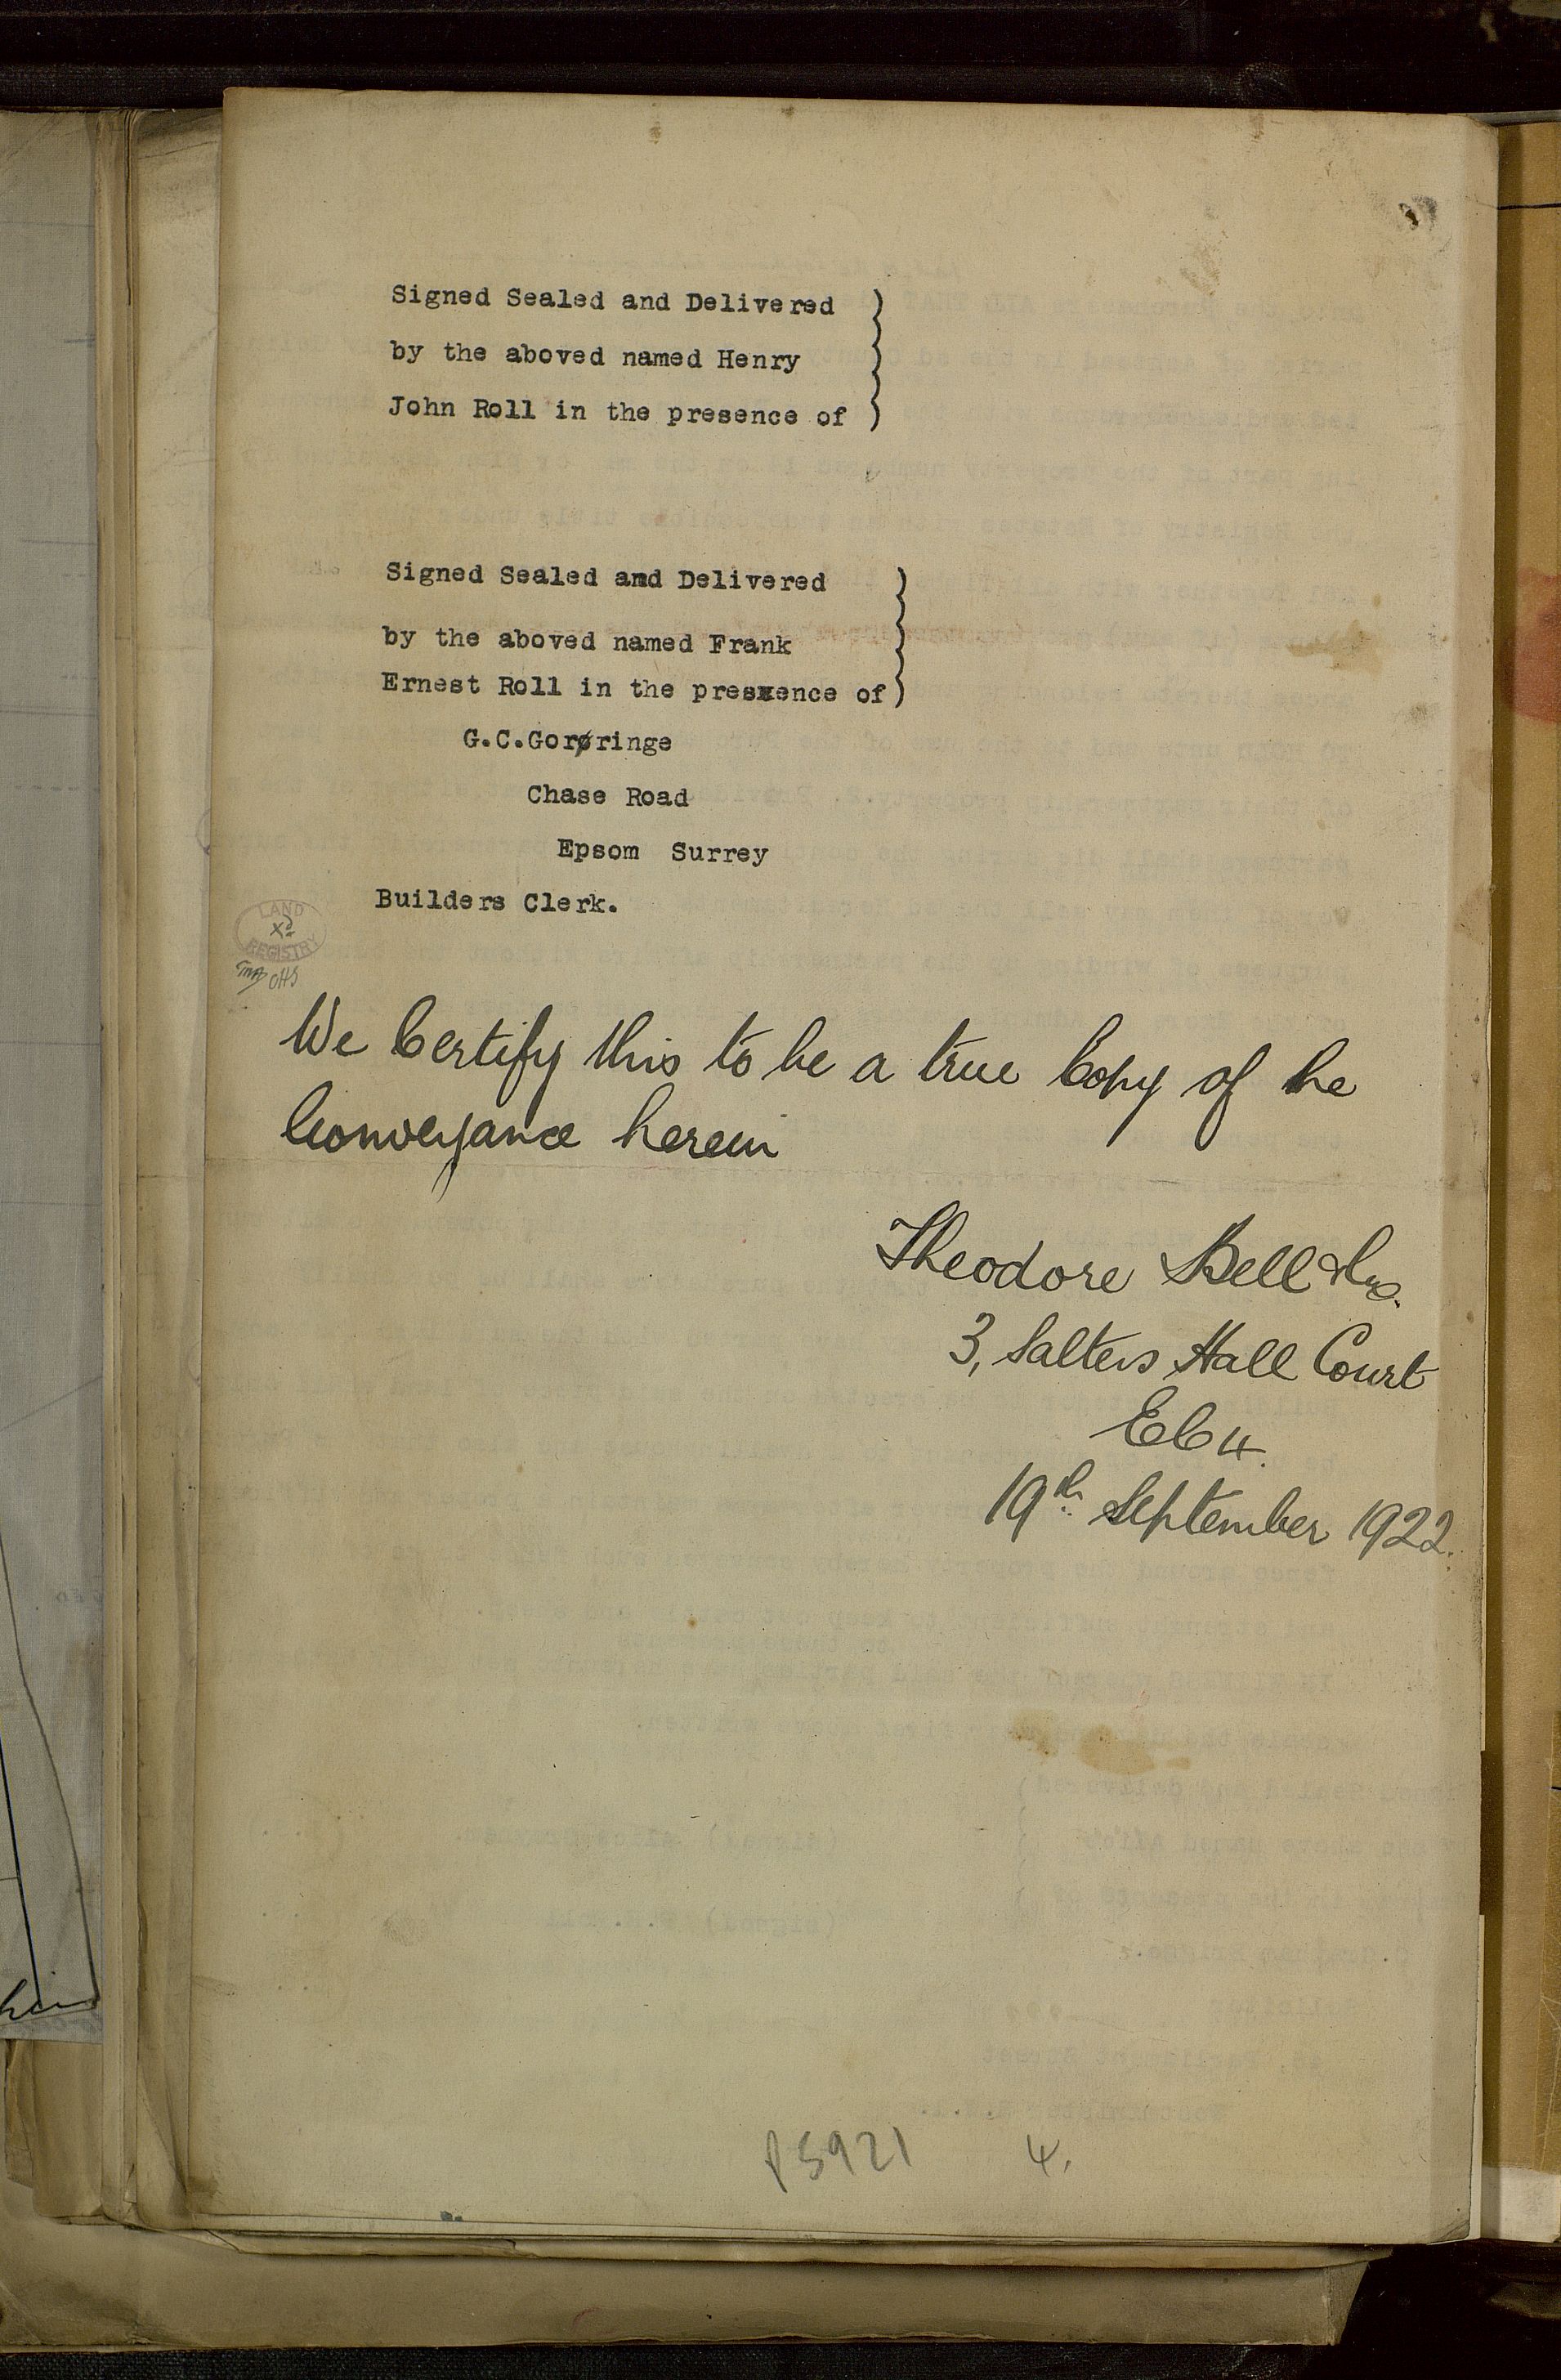 Signed Sealed and Delivered
by the aboved named Henry
John Roll in the presence of
Signed Sealed and Delivered
by the aboved named Frank
Ernest Roll in the presxence of
G.C.Gorøringe
Chase Road
Epsom Surrey
Builders Clerk.
LAND
Xd
REGISTRY
OHS
We Certify this to be a true Copy of the
Conveyance herein
Theodore Bell & Co.
3, Salters Hall Court
EC4.
19th September 1922.
P5921 4.